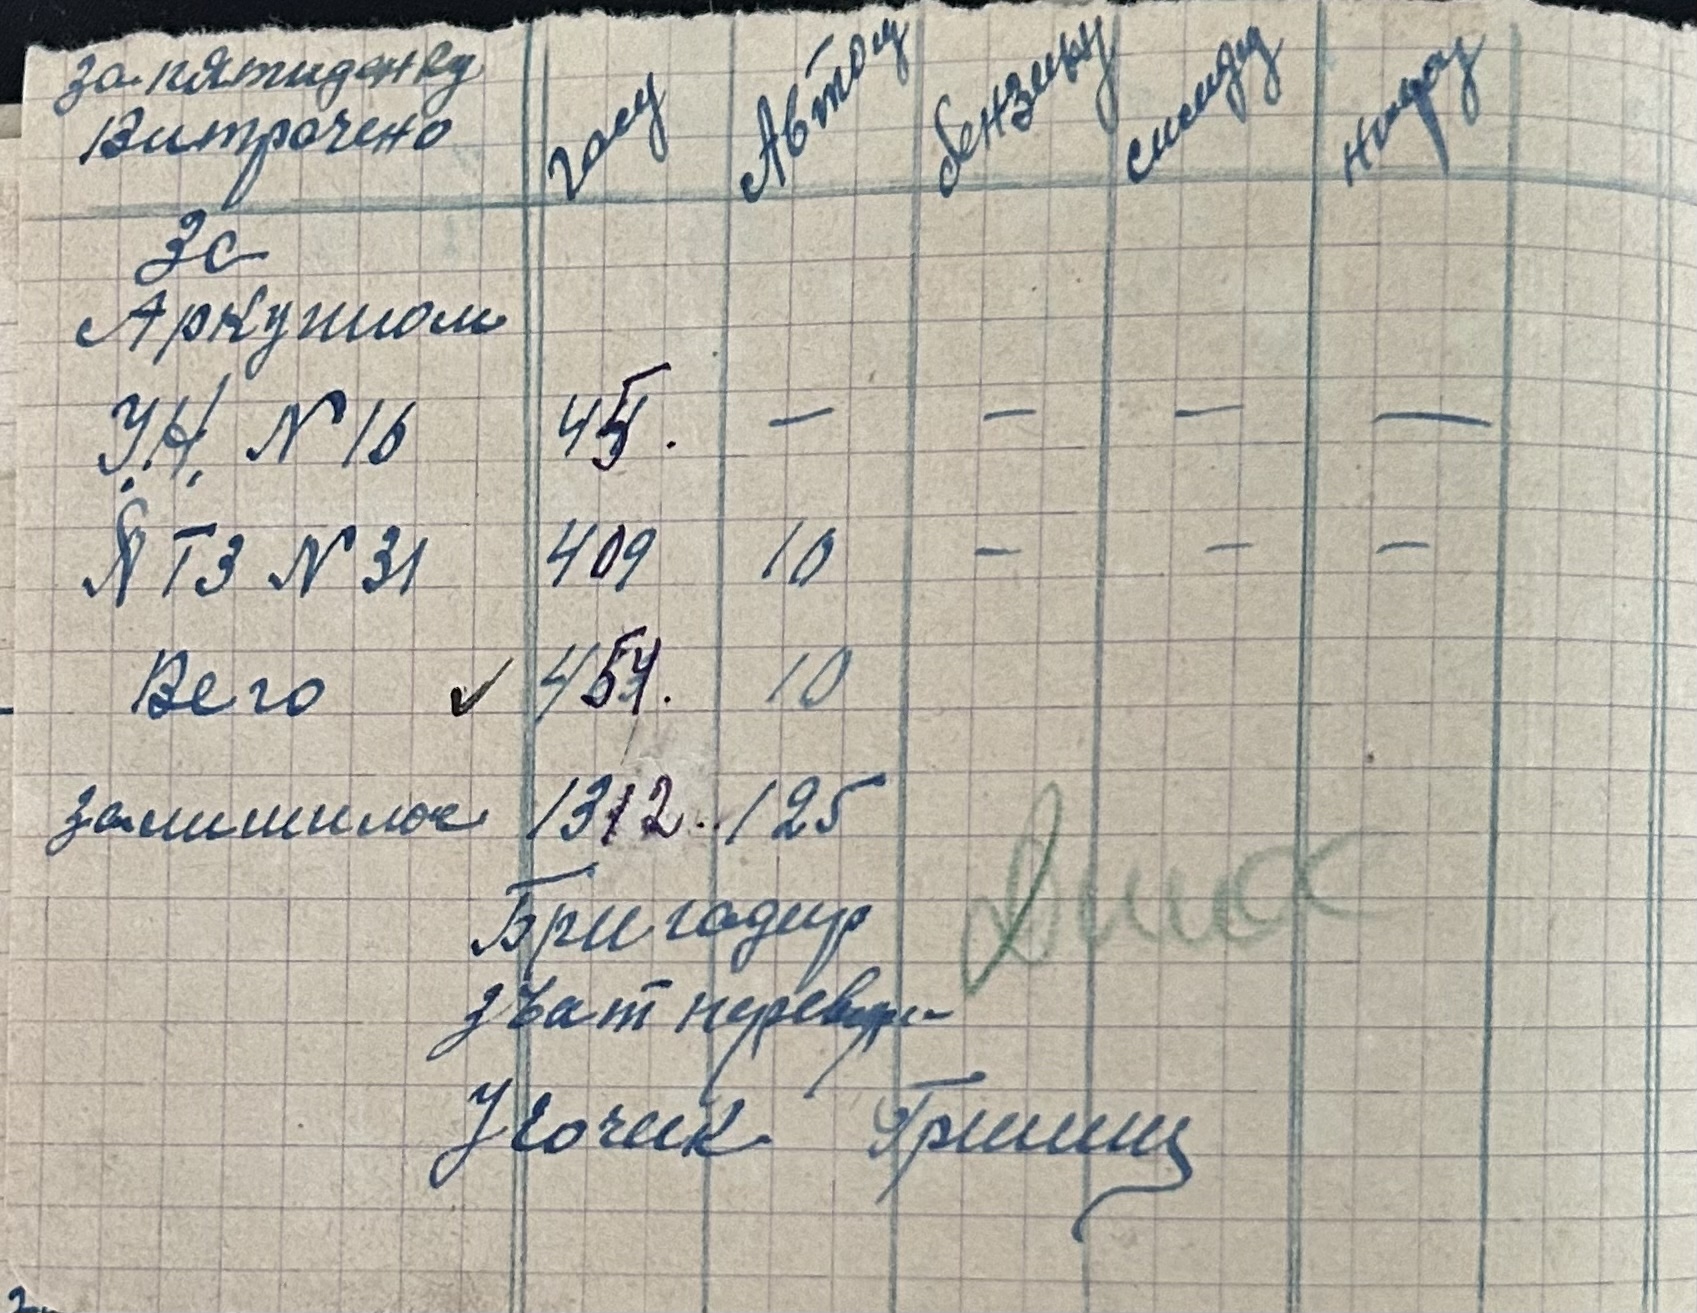 за пятиденку
Витрочено
гасу Автолу бензину солиду нигрол
Зс
Аркушом
У.Н. N 16 45. — — — —
ХТЗ N 31 409 10 — — —
Всего ✓ 454. 10
залишилос 1312. 125
Бригадир
звіт перевірв
Учочик Гришиц